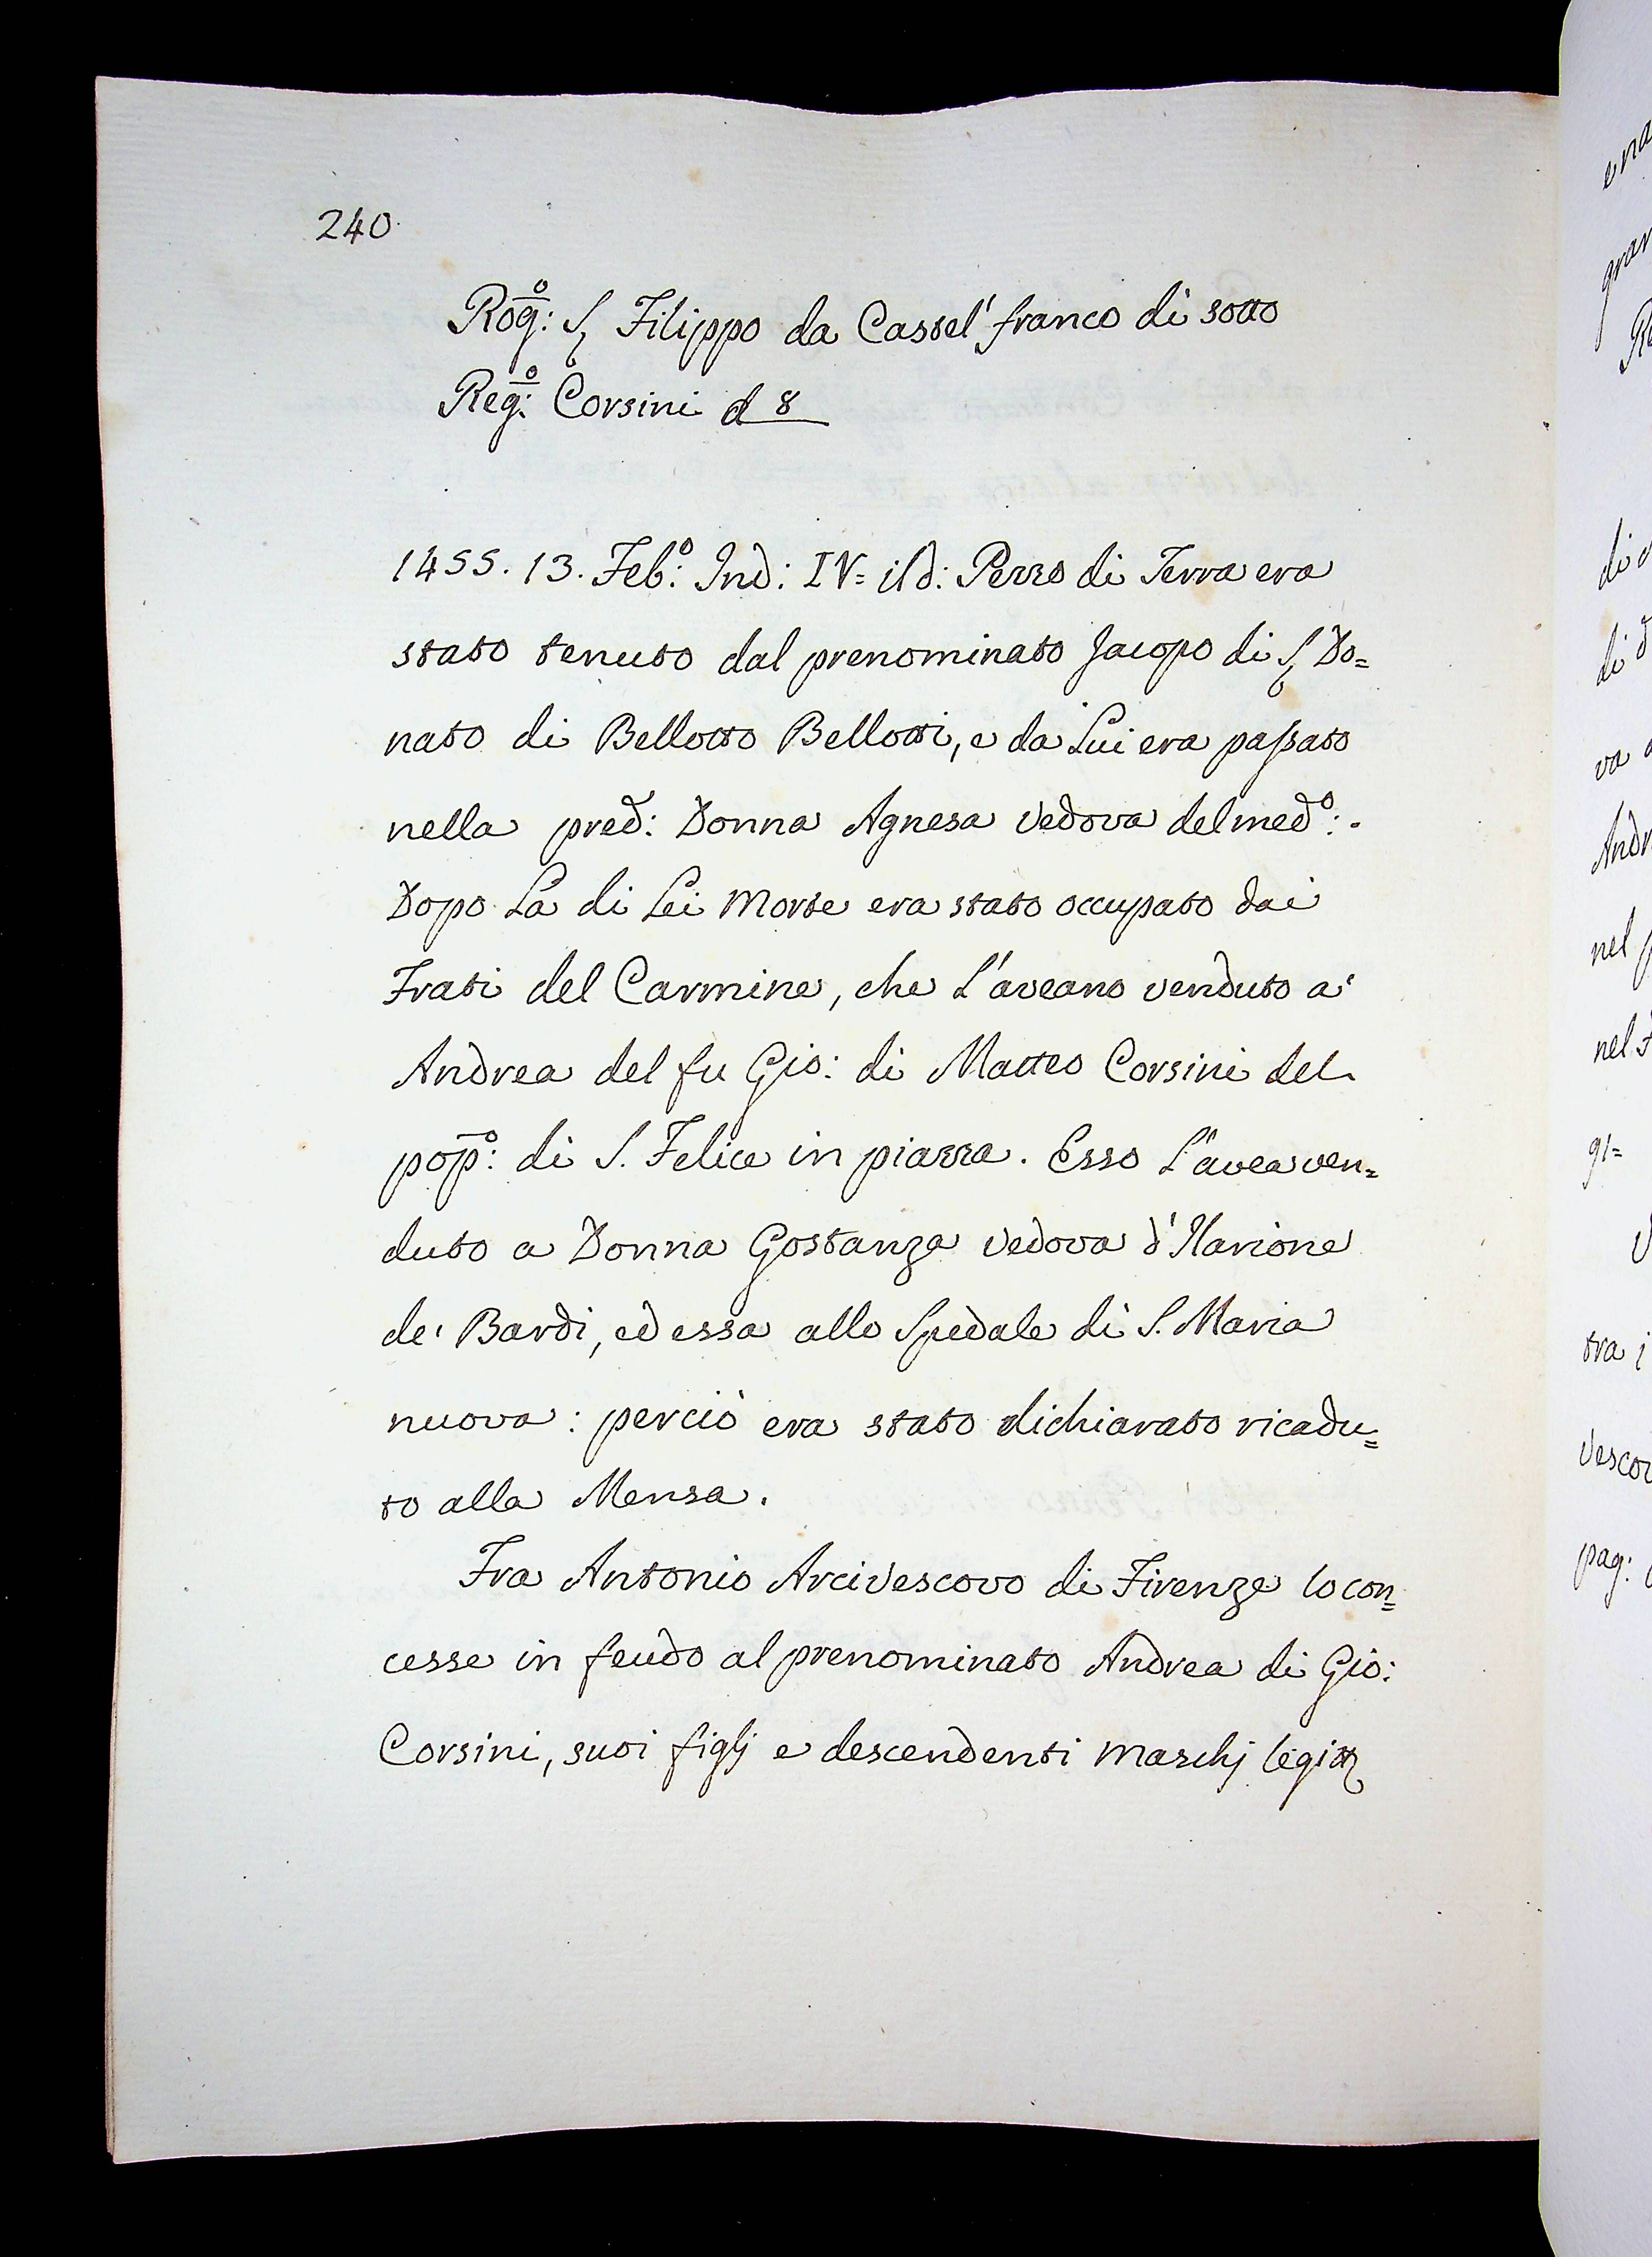 240.
Rog:º S. Filippo da Castel' franco di sotto
Reg:º Corsini d 8
1455. 13. Feb:º Ind: IV= il d: Pezzo di Terra era
stato tenuto dal prenominato Jacopo di S. Do=
nato di Bellotto Bellotti, e da Lui era passato
nella pred: Donna Agnesa Vedova del med:º.
Dopo La di Lei Morte era stato occupato dai
Frati del Carmine, che L'aveano venduto a'
Andrea del fu Gio: di Matteo Corsini del
pop:º di S. Felice in piazza. Esso L'avea ven=
duto a Donna Gostanza Vedova d'Ilarione
de' Bardi, ed essa allo Spedale di S. Maria
nuova: perciò era stato dichiarato ricadu=
to alla Mensa.
Fra Antonio Arcivescovo di Firenze lo con=
cesse in feudo al prenominato Andrea di Gio:
Corsini, suoi figlj e descendenti Maschj legitt
di
di
va
Andr
nel
nel
gi=
tra i
Vescov
pag: